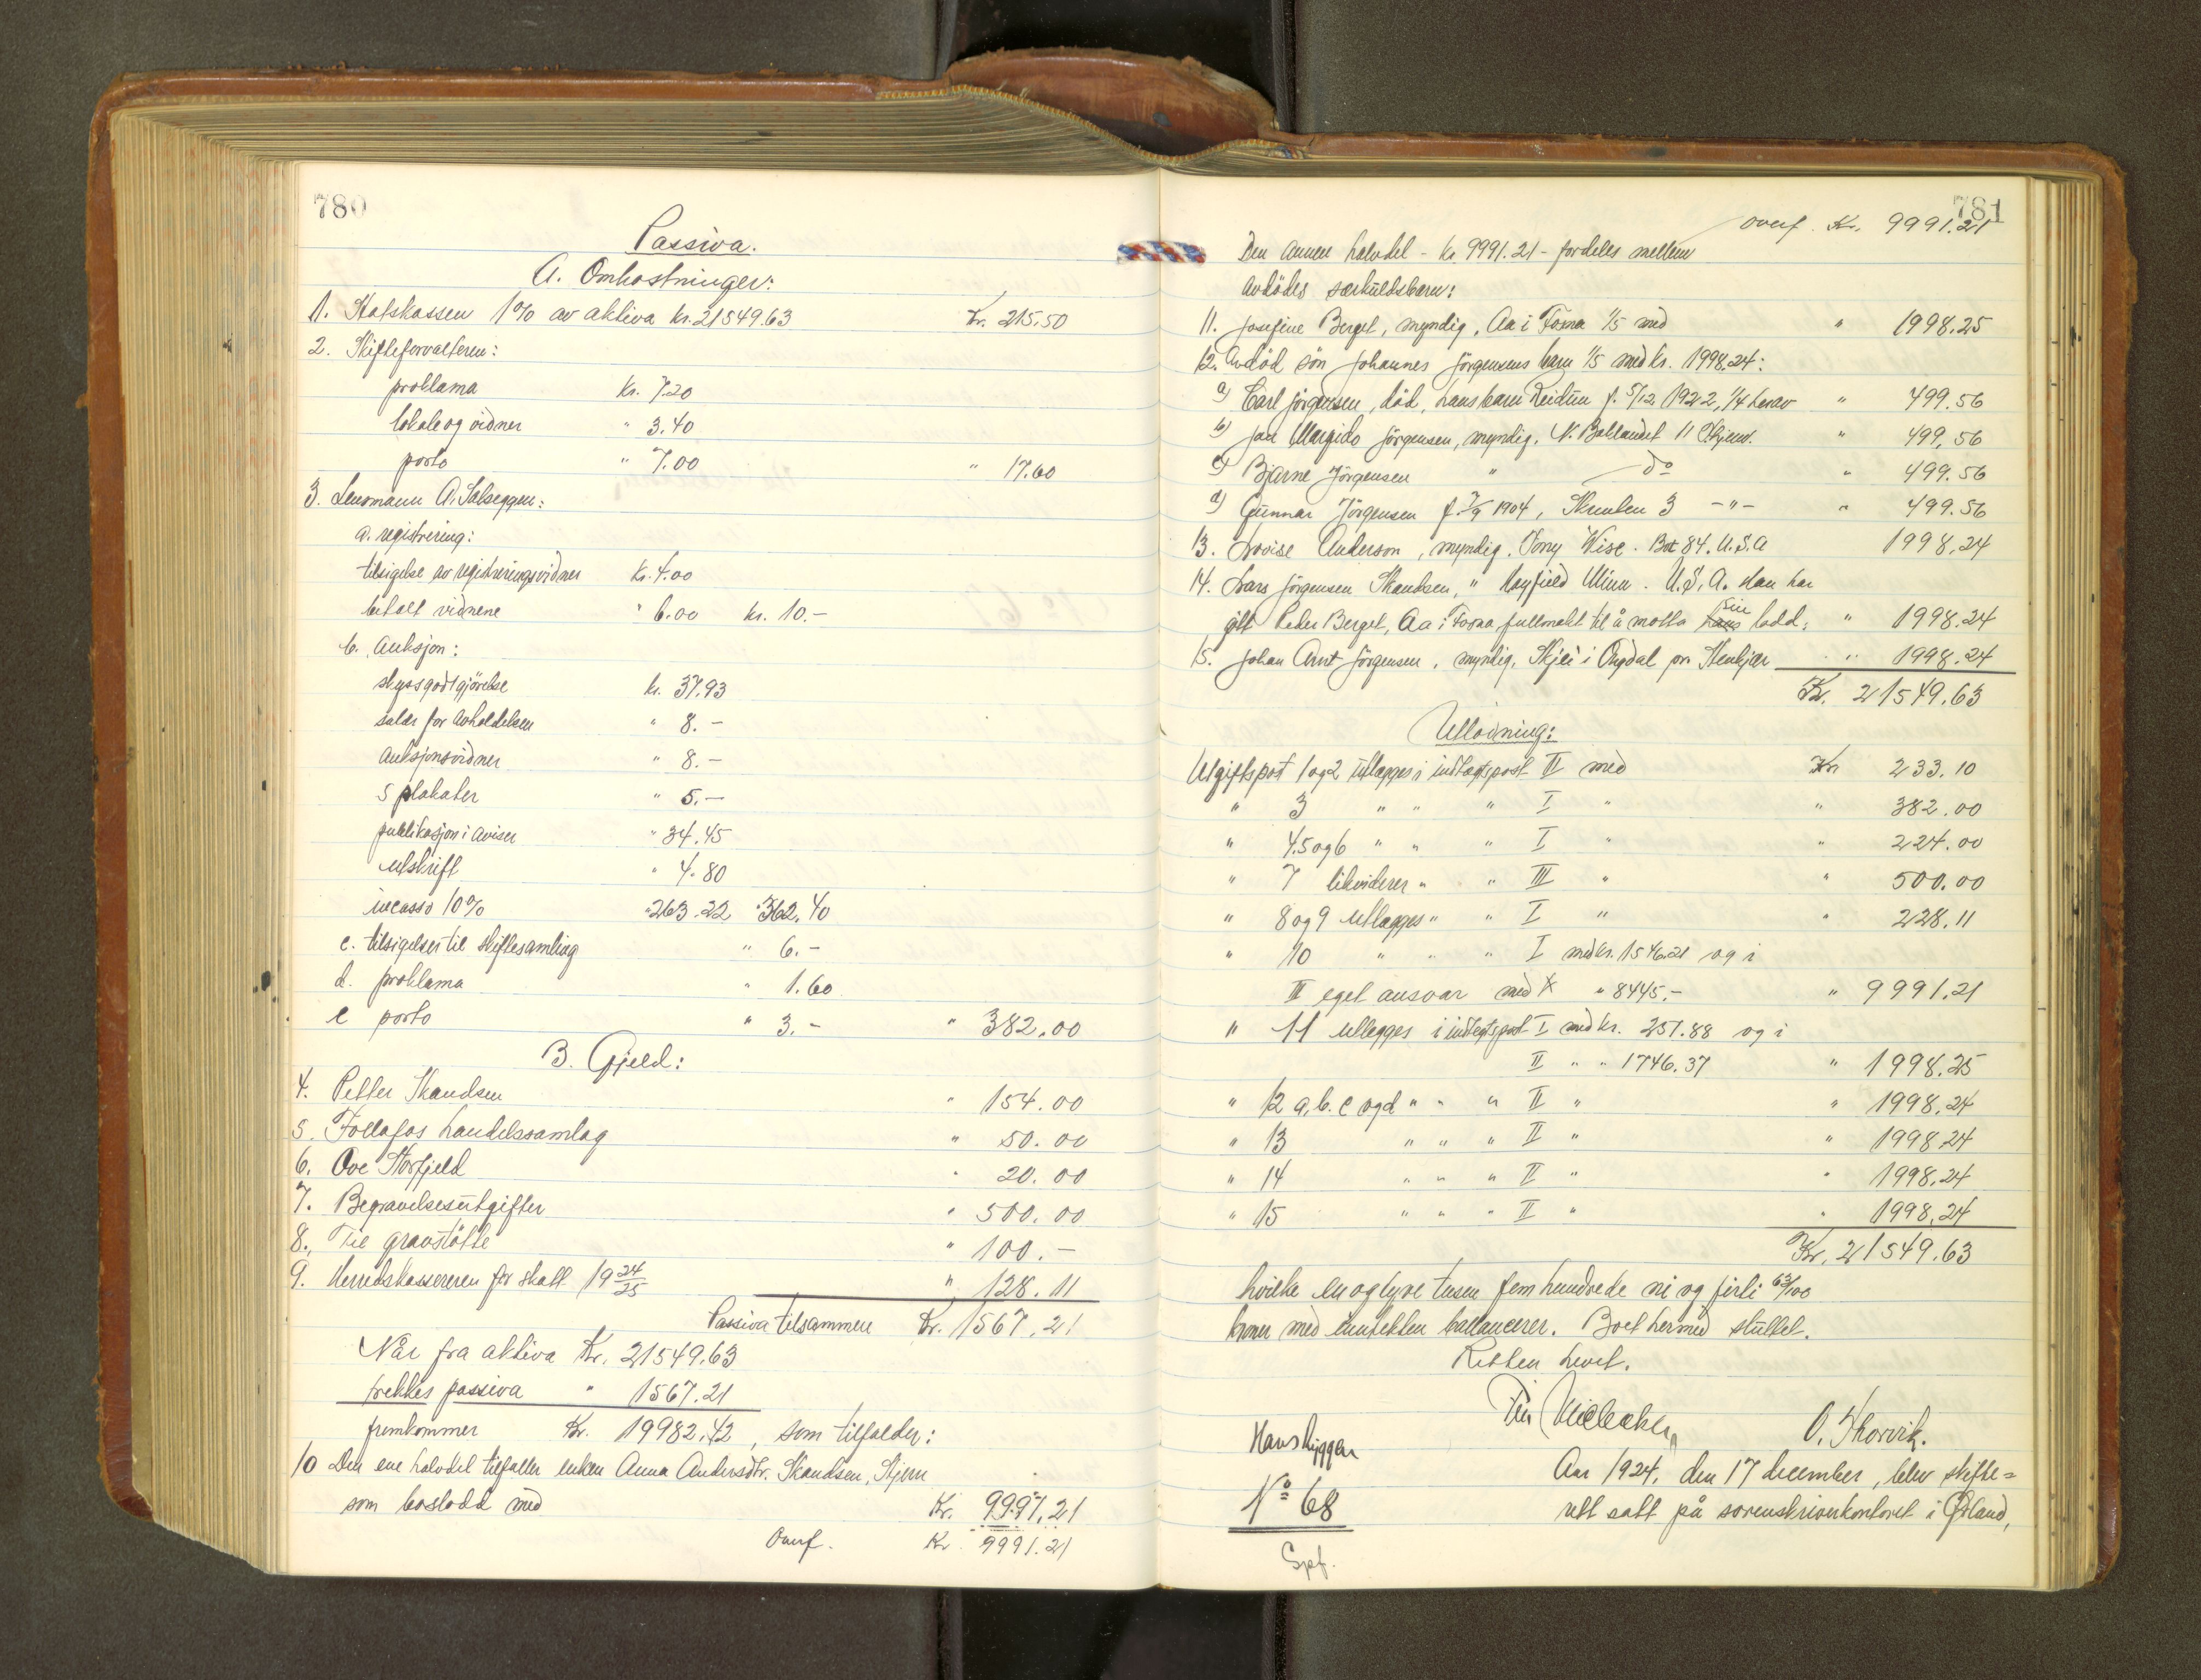 780
Passiva.
A. Omkostninger:
1. Statskassen 1% av aktiva kr. 21549.63 Kr. 215.50
2. Skifteforvalteren:
proklama Kr. 7.20
lokale og vidner " 3.40
porto " 7.00 " 17.60
3. Lensmann A. Salseggen:
a. registrering:
tilsigelse av registreringsvidner Kr. 4.00
betalt vidnene " 6.00 kr. 10.-
b. Auksjon:
skyssgodtgjörelse kr. 37.93
salær for avholdelsen " 8.-
auksjonsvidner " 8.-
5 plakater " 5.-
publikasjon i aviser " 34.45
utskrift " 4.80
incasso 10% " 263.22 " 362.40
c. tilsigelser til skiftesamling " 6.-
d. proklama " 1.60
e porto " 3.- " 382.00
B. Gjeld:
4. Petter Skandsen " 154.00
5. Follafos handelssamlag " 50.00
6. Ove Storfjeld " 20.00
7. Begravelsesutgifter " 500.00
8. Til gravstötte " 100.-
9. Herredskassereren for skatt 19 24/25 " 128.11
Passiva tilsammen Kr. 1567.21
Når fra aktiva Kr. 21549.63
trekkes passiva " 1567.21
fremkommer Kr. 19982.42, som tilfalder:
10 Den ene halvdel tilfaller enken Anna Andersdtr. Skandsen, Stjern
som boslodd med Kr. 9991.21
Overf. Kr. 9991.21
781
Overf. Kr. 9991.21
Den annen halvdel - kr. 9991.21 - fordeles mellem
avdödes særkuldsbarn:
11. Josefine Berget, myndig, Aa i Fosna 1/5 med " 1998.25
12. Avdöd sön Johannes Jörgensens barn 1/5 med kr. 1998.24:
a) Carl Jörgensen, död, hans barn Reidun f. 5/12 1922, 1/4 herav " 499.56
b) Margido Jörgensen, myndig, N. Baklandet 11 " 499.56
c) Bjarne Jörgensen " do " 499.56
d) Gunnar Jörgensen f. 7/9 1904, 3 -"- " 499.56
13. Lovise Anderson, myndig, Wise. Box 84. U.S.A 1998.24
14. Lars Jörgensen Skandsen, " Mayfield Minn. U.S.A. Han har
gitt Peder Berget, Aa i Fosna fullmakt til å motta hans sin lodd: " 1998.24
15. Johan Arnt Jörgensen, myndig, i Ongdal pr. Stenkjær " 1998.24
Kr. 21549.63
Utlodning:
Utgiftspost 1 og 2 utlægges i indtægtspost II med Kr 233.10
" 3 " " " I " " 382.00
" 4. 5 og 6 " " " I " " 224.00
" 7 likviderer " " III " " 500.00
" 8 og 9 utlægges " " I " " 228.11
" 10 " " " I med kr. 1546.21 og i
III eget ansvar med " 8445.- " 9991.21
" 11 utlegges i indtegtspost I med kr. 251.88 og i
II " " 1746.37 " 1998.25
" 12 a, b. c og d " " " II " " 1998.24
" 13 " " " II " " 1998.24
" 14 " " " II " " 1998.24
" 15 " " " II " " 1998.24
Kr. 21549.63
hvilke en og tyve tusen fem hundrede ni og firti 63/100
kroner med inntekten ballancerer. Boet hermed sluttet.
Retten hevet.
O. Skorvik.
Hans Nyggen
No 68
Spf.
Aar 1924, den 17 december, blev skifte=
rett satt på sorenskriverkontoret i Ørland,